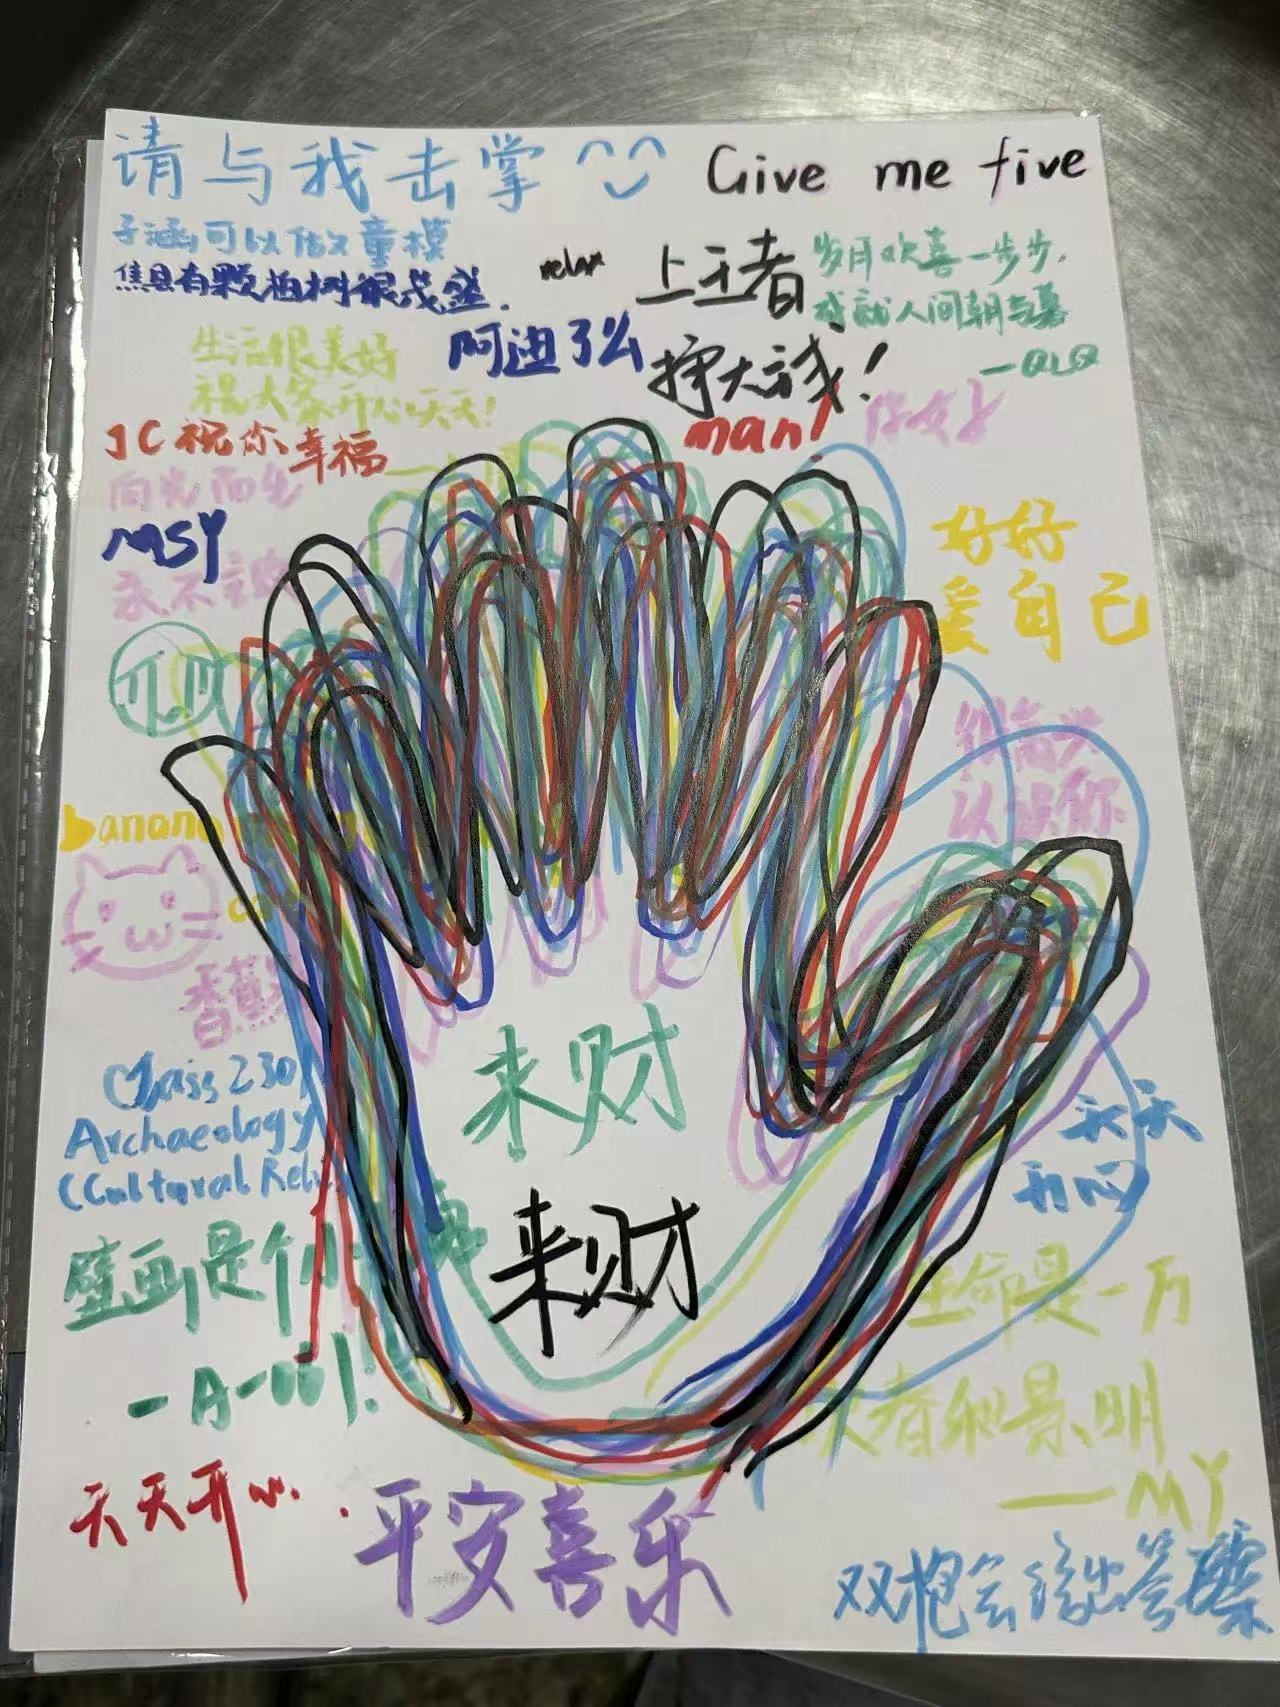 请与我击掌 Give me five
子涵可以做童模
焦县有颗柏树很茂盛.
relax
上王者
挣大钱!
岁月欢喜一步步,
成就人间朝与暮
—QLQ
阿迪了么
生活很美好
祝大家开心天天!
man!
你好
JC祝你幸福
向光而生
MSY
永不言
好好
爱自己
很高兴
认识你
banana
cat
香蕉
来财
来财
Class 230
Archaeology
(Cultural Reli
天天
开心
壁画是个
生命是一万
次春和景明
—MY
天天开心.
平安喜乐
双枪会给出答案